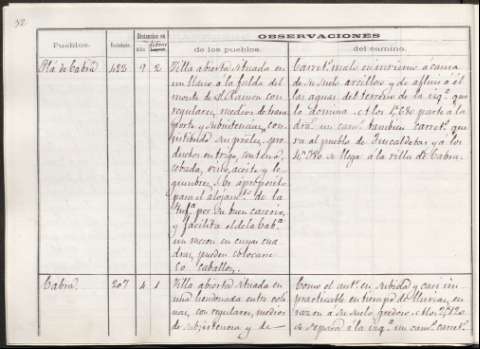 32
OBSERVACIONES
Pueblos.
de los pueblos.
del camino.
Plá de Cabra
422
9
2
Villa abierta situada en
un llano á la falda del
monte de S. Ramon con
regulares medios de trans
porte y subsistencias, con
trigo, centeno,
cebada, vino, aceite y le
gumbres,
para el alojam.to de la
Inf.a por su buen caserio,
y facilita el de la Cab.a
un meson en cuyas cua
dras, pueden colocarse
50 caballos.
Carret.o malo en invierno á causa
de su suelo arcilloso y de afluir á él
las aguas del terreno de la izq.a que
lo domina. Á los parte á la
dra. un cam.o tambien carret.o que
va al pueblo de y á los
se llega á la villa de Cabra.
Cabra
207
4
1
Villa abierta situada en
una hondonada entre coli
nas, con regulares medios
de subsistencia y de
Como el ant.or en subida y casi im
practicable en tiempo de lluvias, en
razon á su suelo gredoso. Á los 2,120
se separa á la izq.a un cam.o carret.o